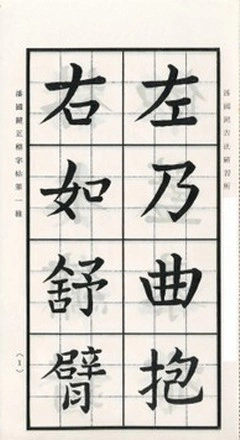 潘國鍵書法研習所
左乃曲抱
右如舒臂
潘國鍵正楷字帖第一種
〈1〉